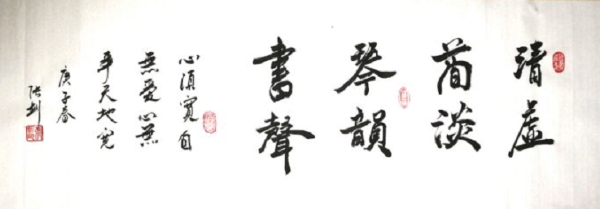 清虛
简淡
琴韻
書聲
心須寬自
無憂心無
平天地寬
庚子春